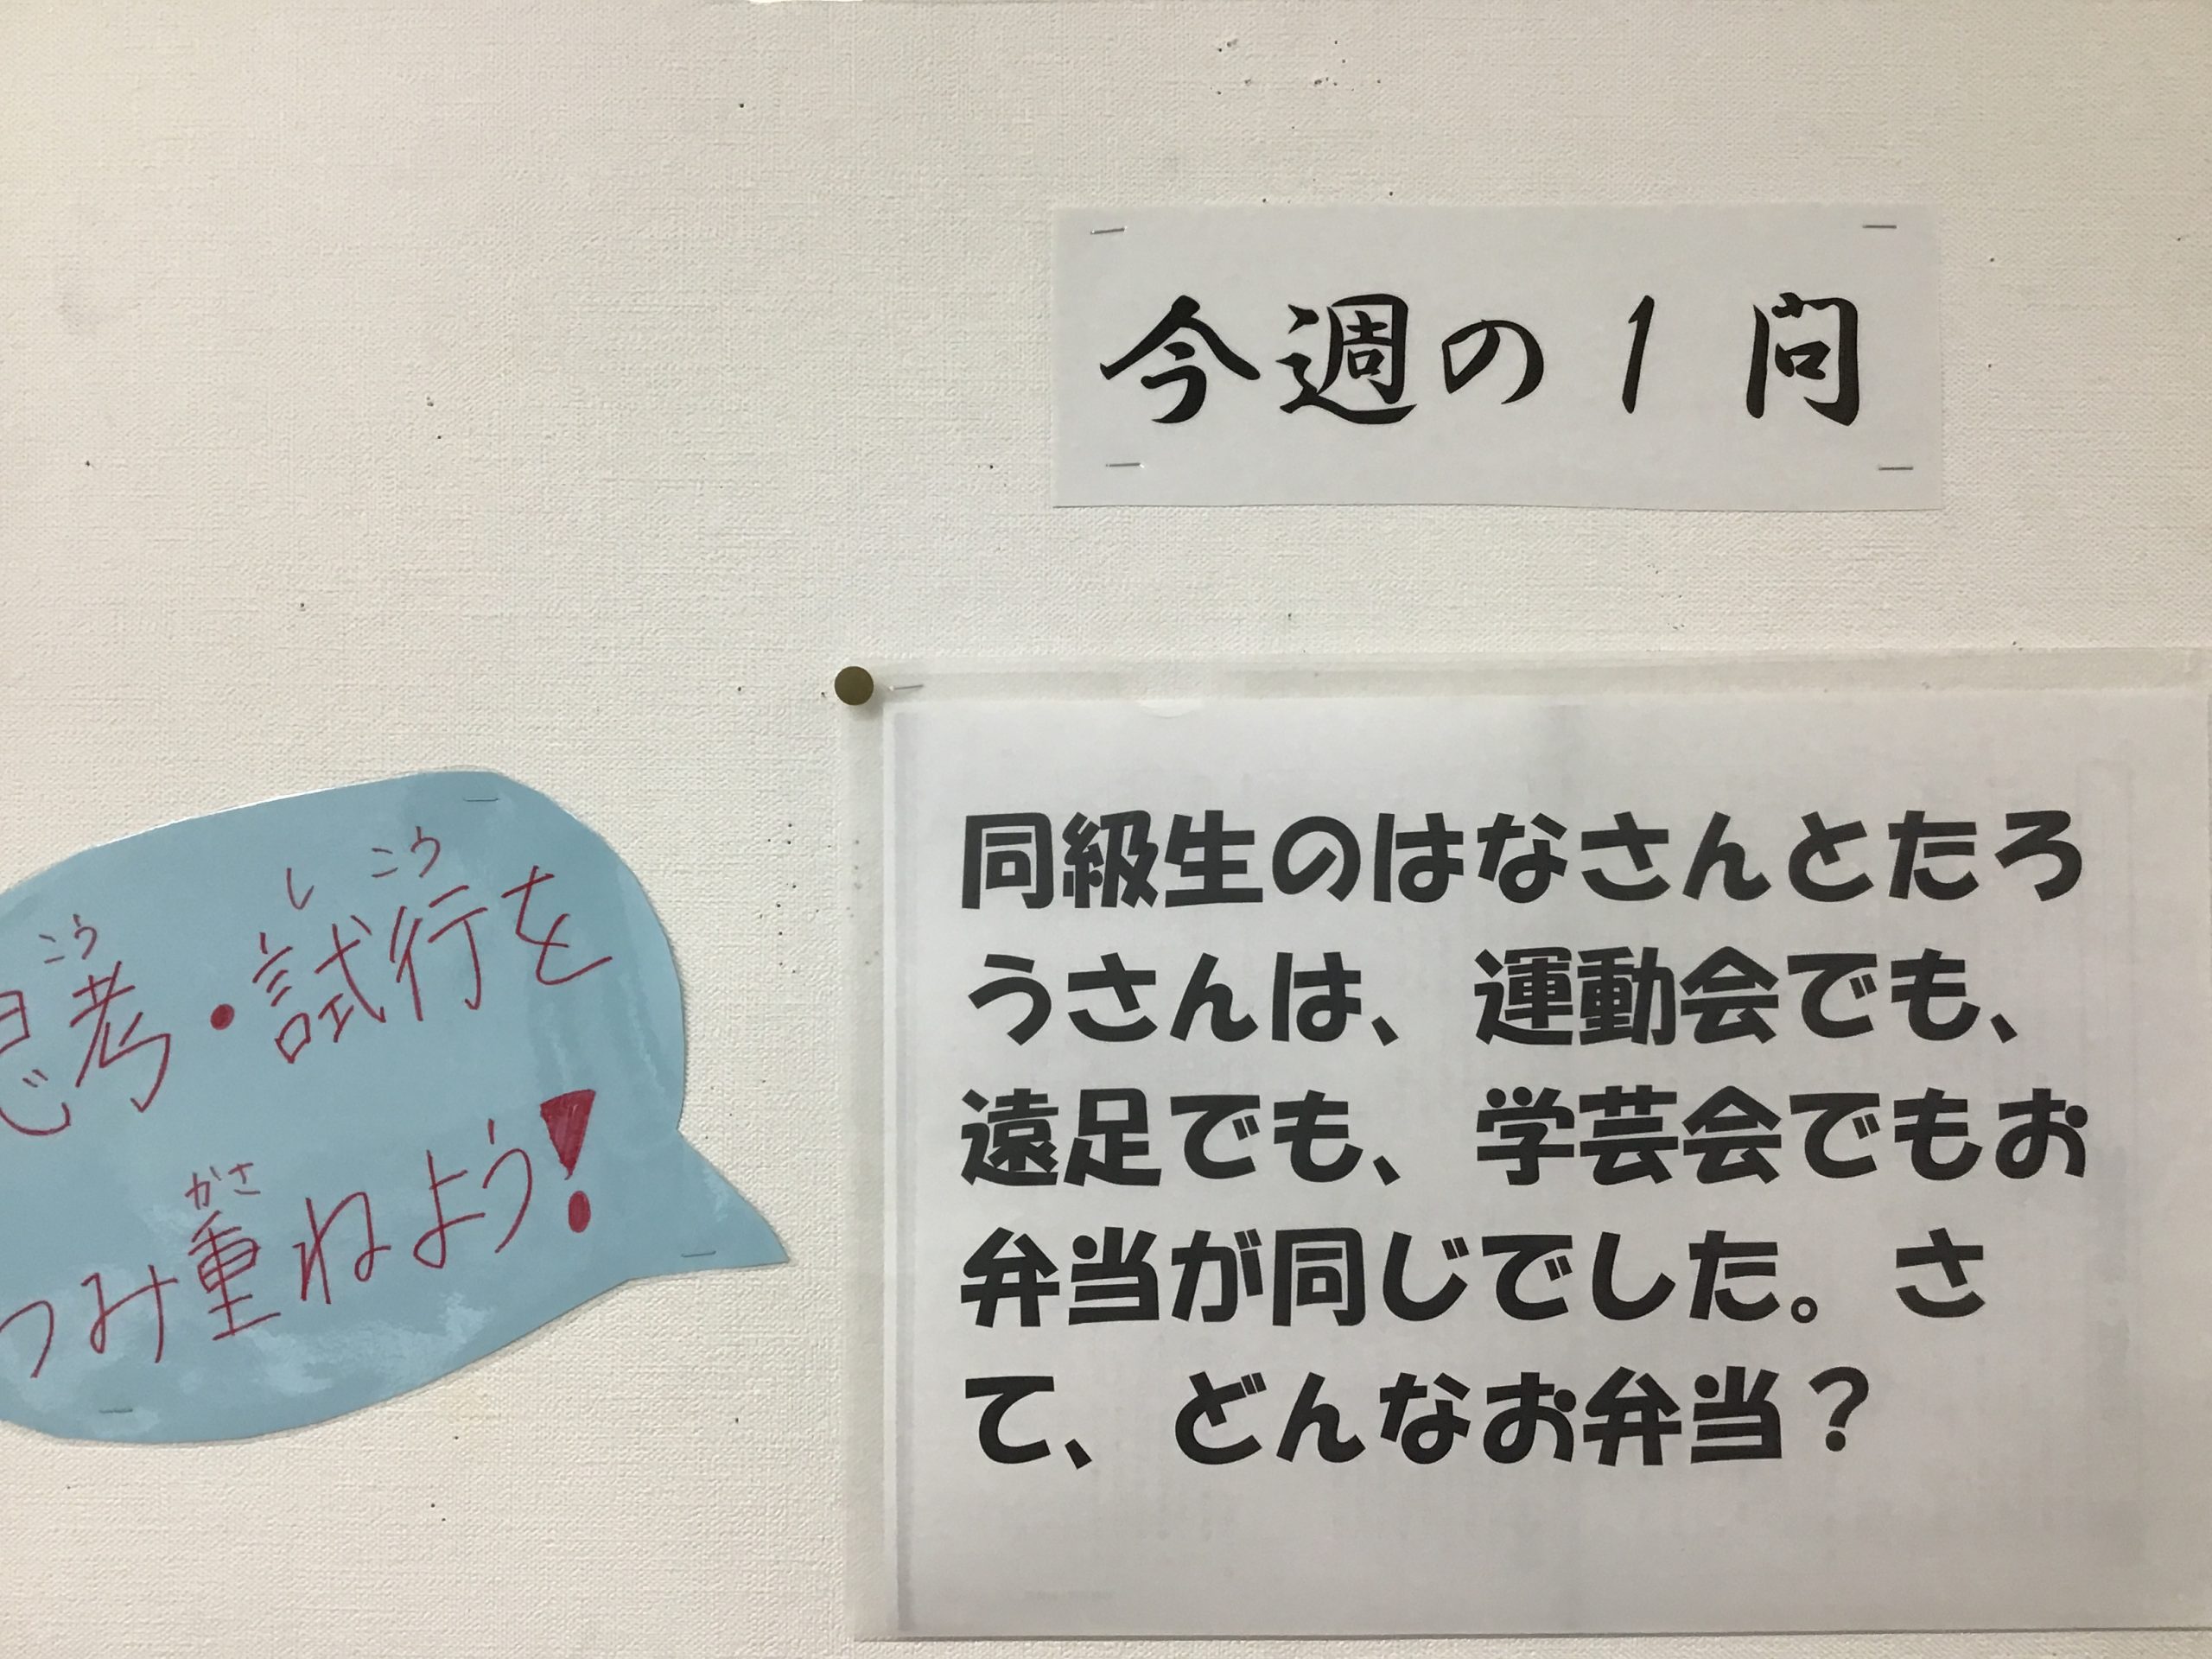 今週の1問
同級生のはなさんとたろ
うさんは、運動会でも、
遠足でも、学芸会でもお
弁当が同じでした。さ
て、どんなお弁当？
こう し こう
思考・試行を
かさ
つみ重ねよう!